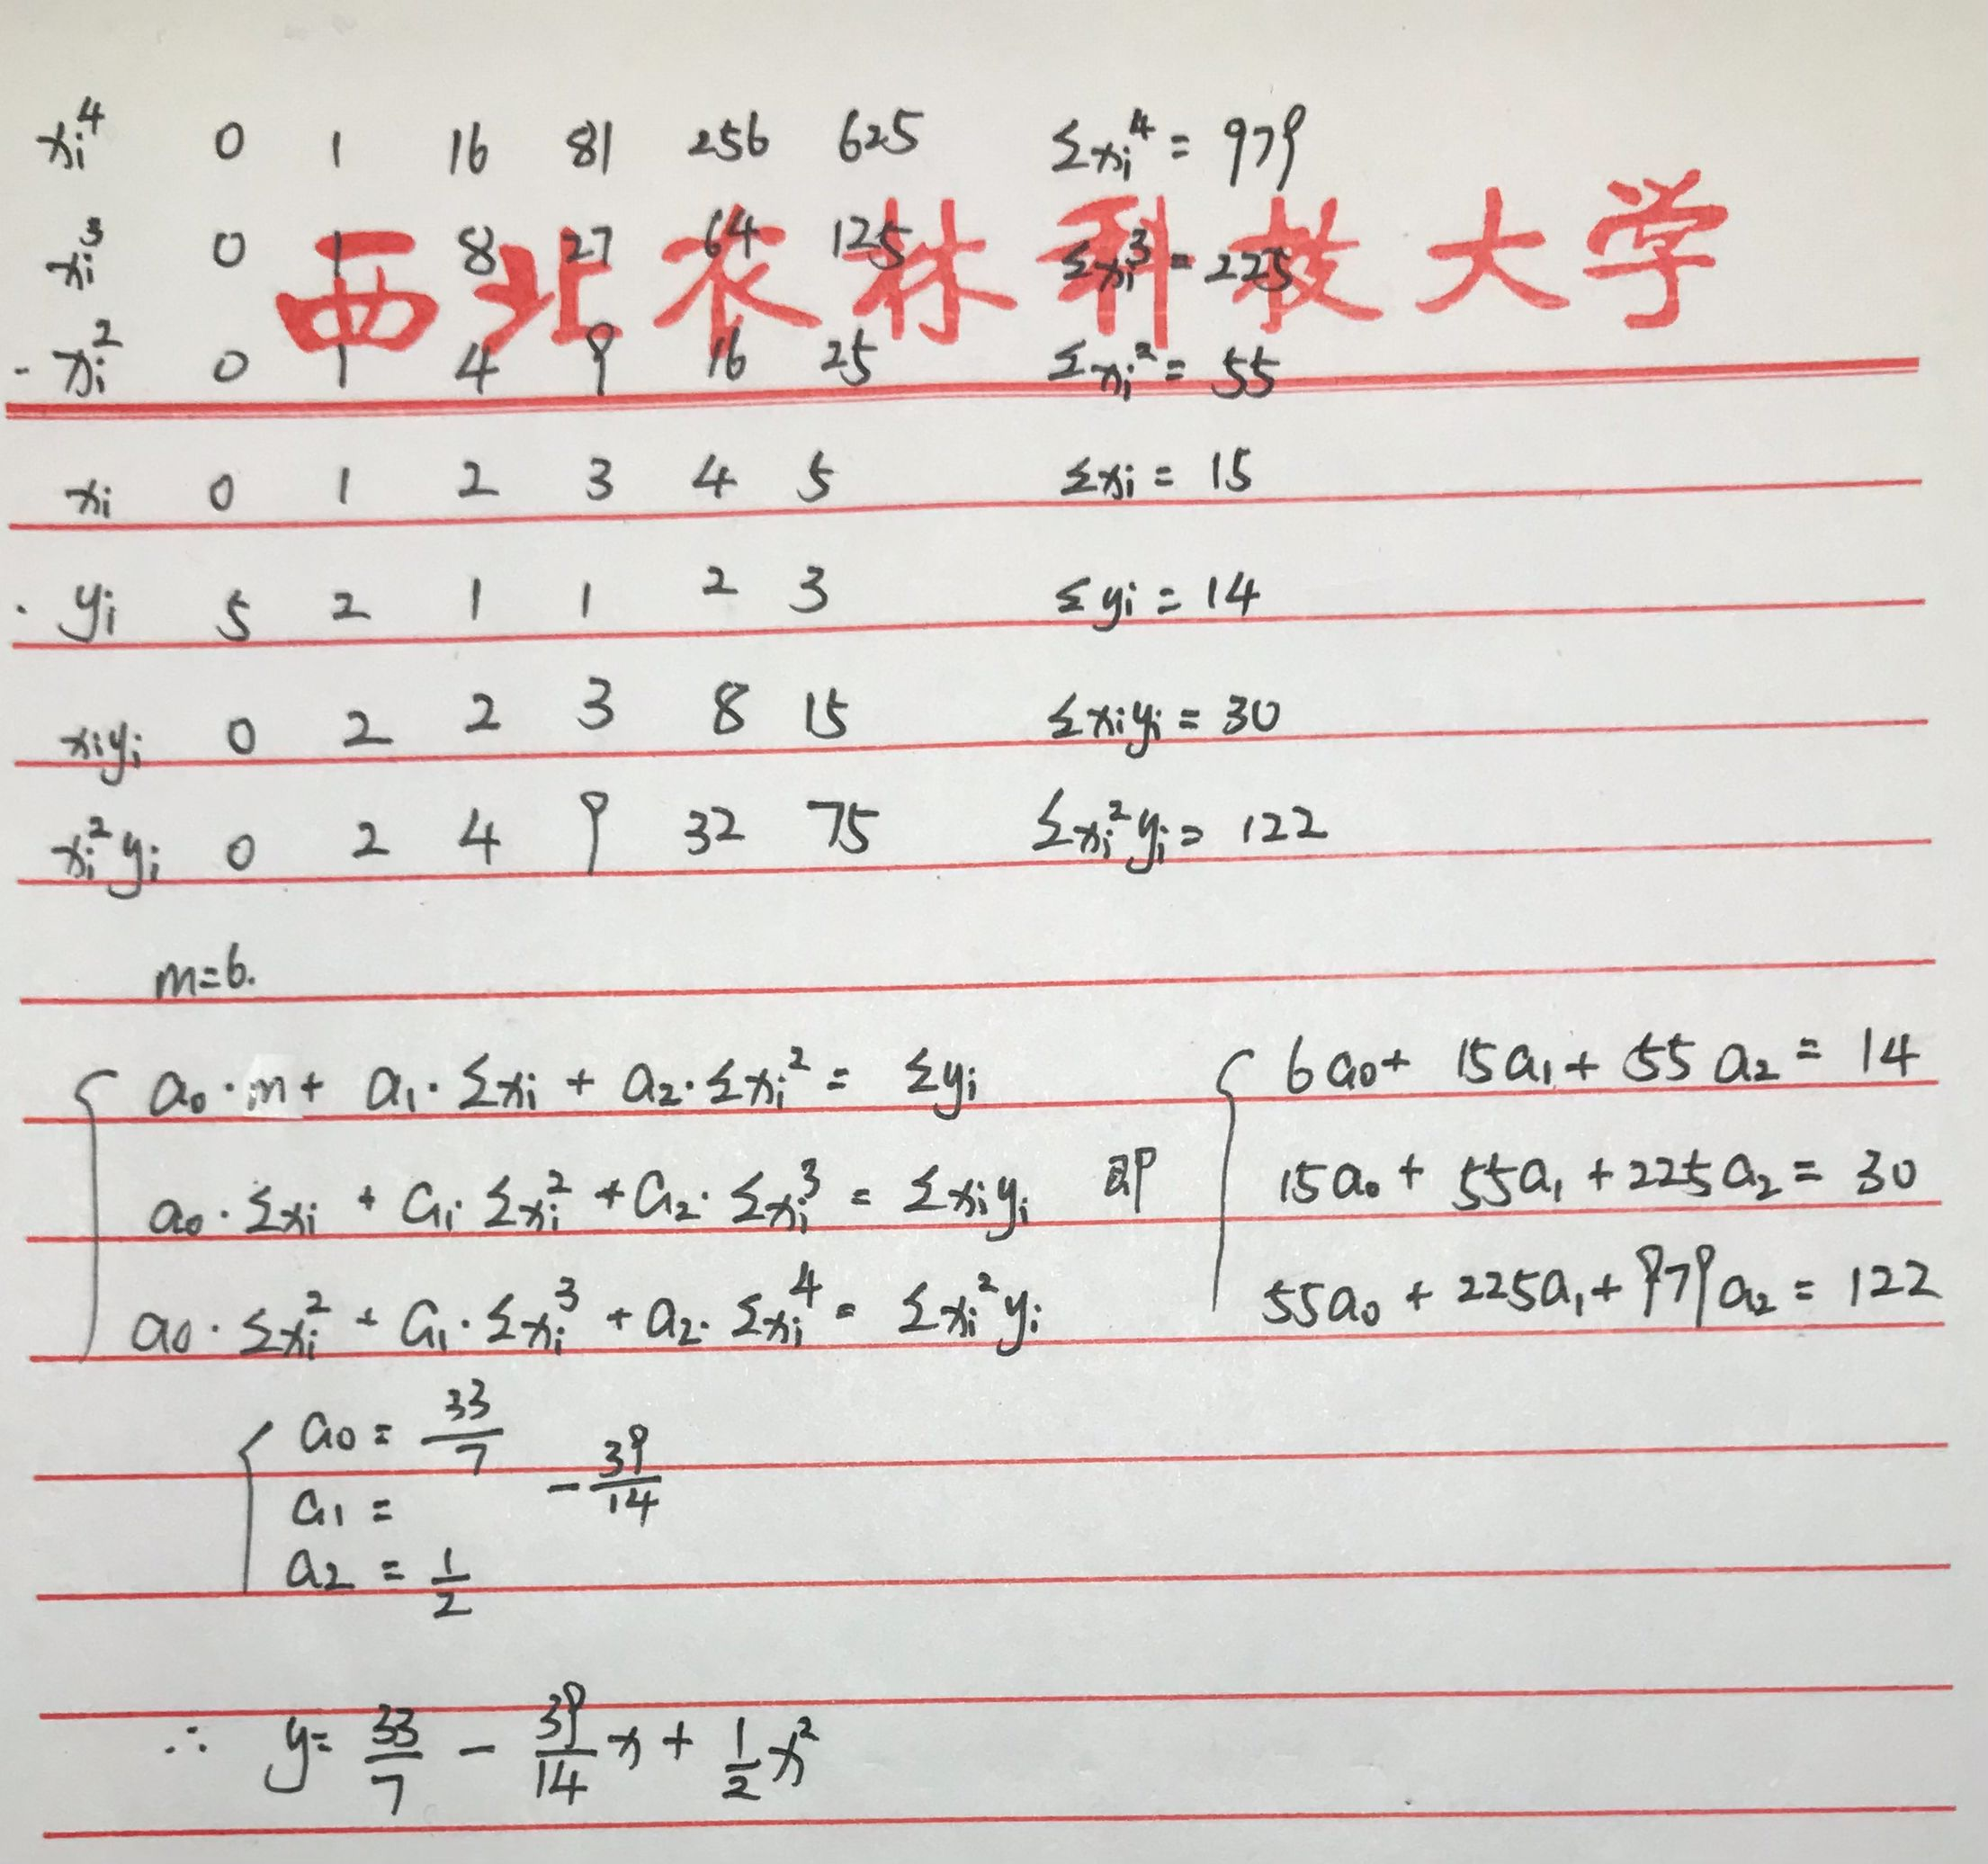 xi^4 0 1 16 81 256 625 Σxi^4 = 979
西北农林科技大学
xi^3 0 1 8 27 64 125 Σxi^3 = 225
xi^2 0 1 4 9 16 25 Σxi^2 = 55
xi 0 1 2 3 4 5 Σxi = 15
yi 5 2 1 1 2 3 Σyi = 14
xiyi 0 2 2 3 8 15 Σxiyi = 30
xi^2yi 0 2 4 9 32 75 Σxi^2yi = 122
m=6.
{ a0·m + a1·Σxi + a2·Σxi^2 = Σyi
a0·Σxi + a1·Σxi^2 + a2·Σxi^3 = Σxiyi 即
a0·Σxi^2 + a1·Σxi^3 + a2·Σxi^4 = Σxi^2yi
{ 6a0 + 15a1 + 55a2 = 14
15a0 + 55a1 + 225a2 = 30
55a0 + 225a1 + 979a2 = 122
{ a0 = 33/7
a1 = -39/14
a2 = 1/2
∴ y = 33/7 - 39/14 x + 1/2 x^2